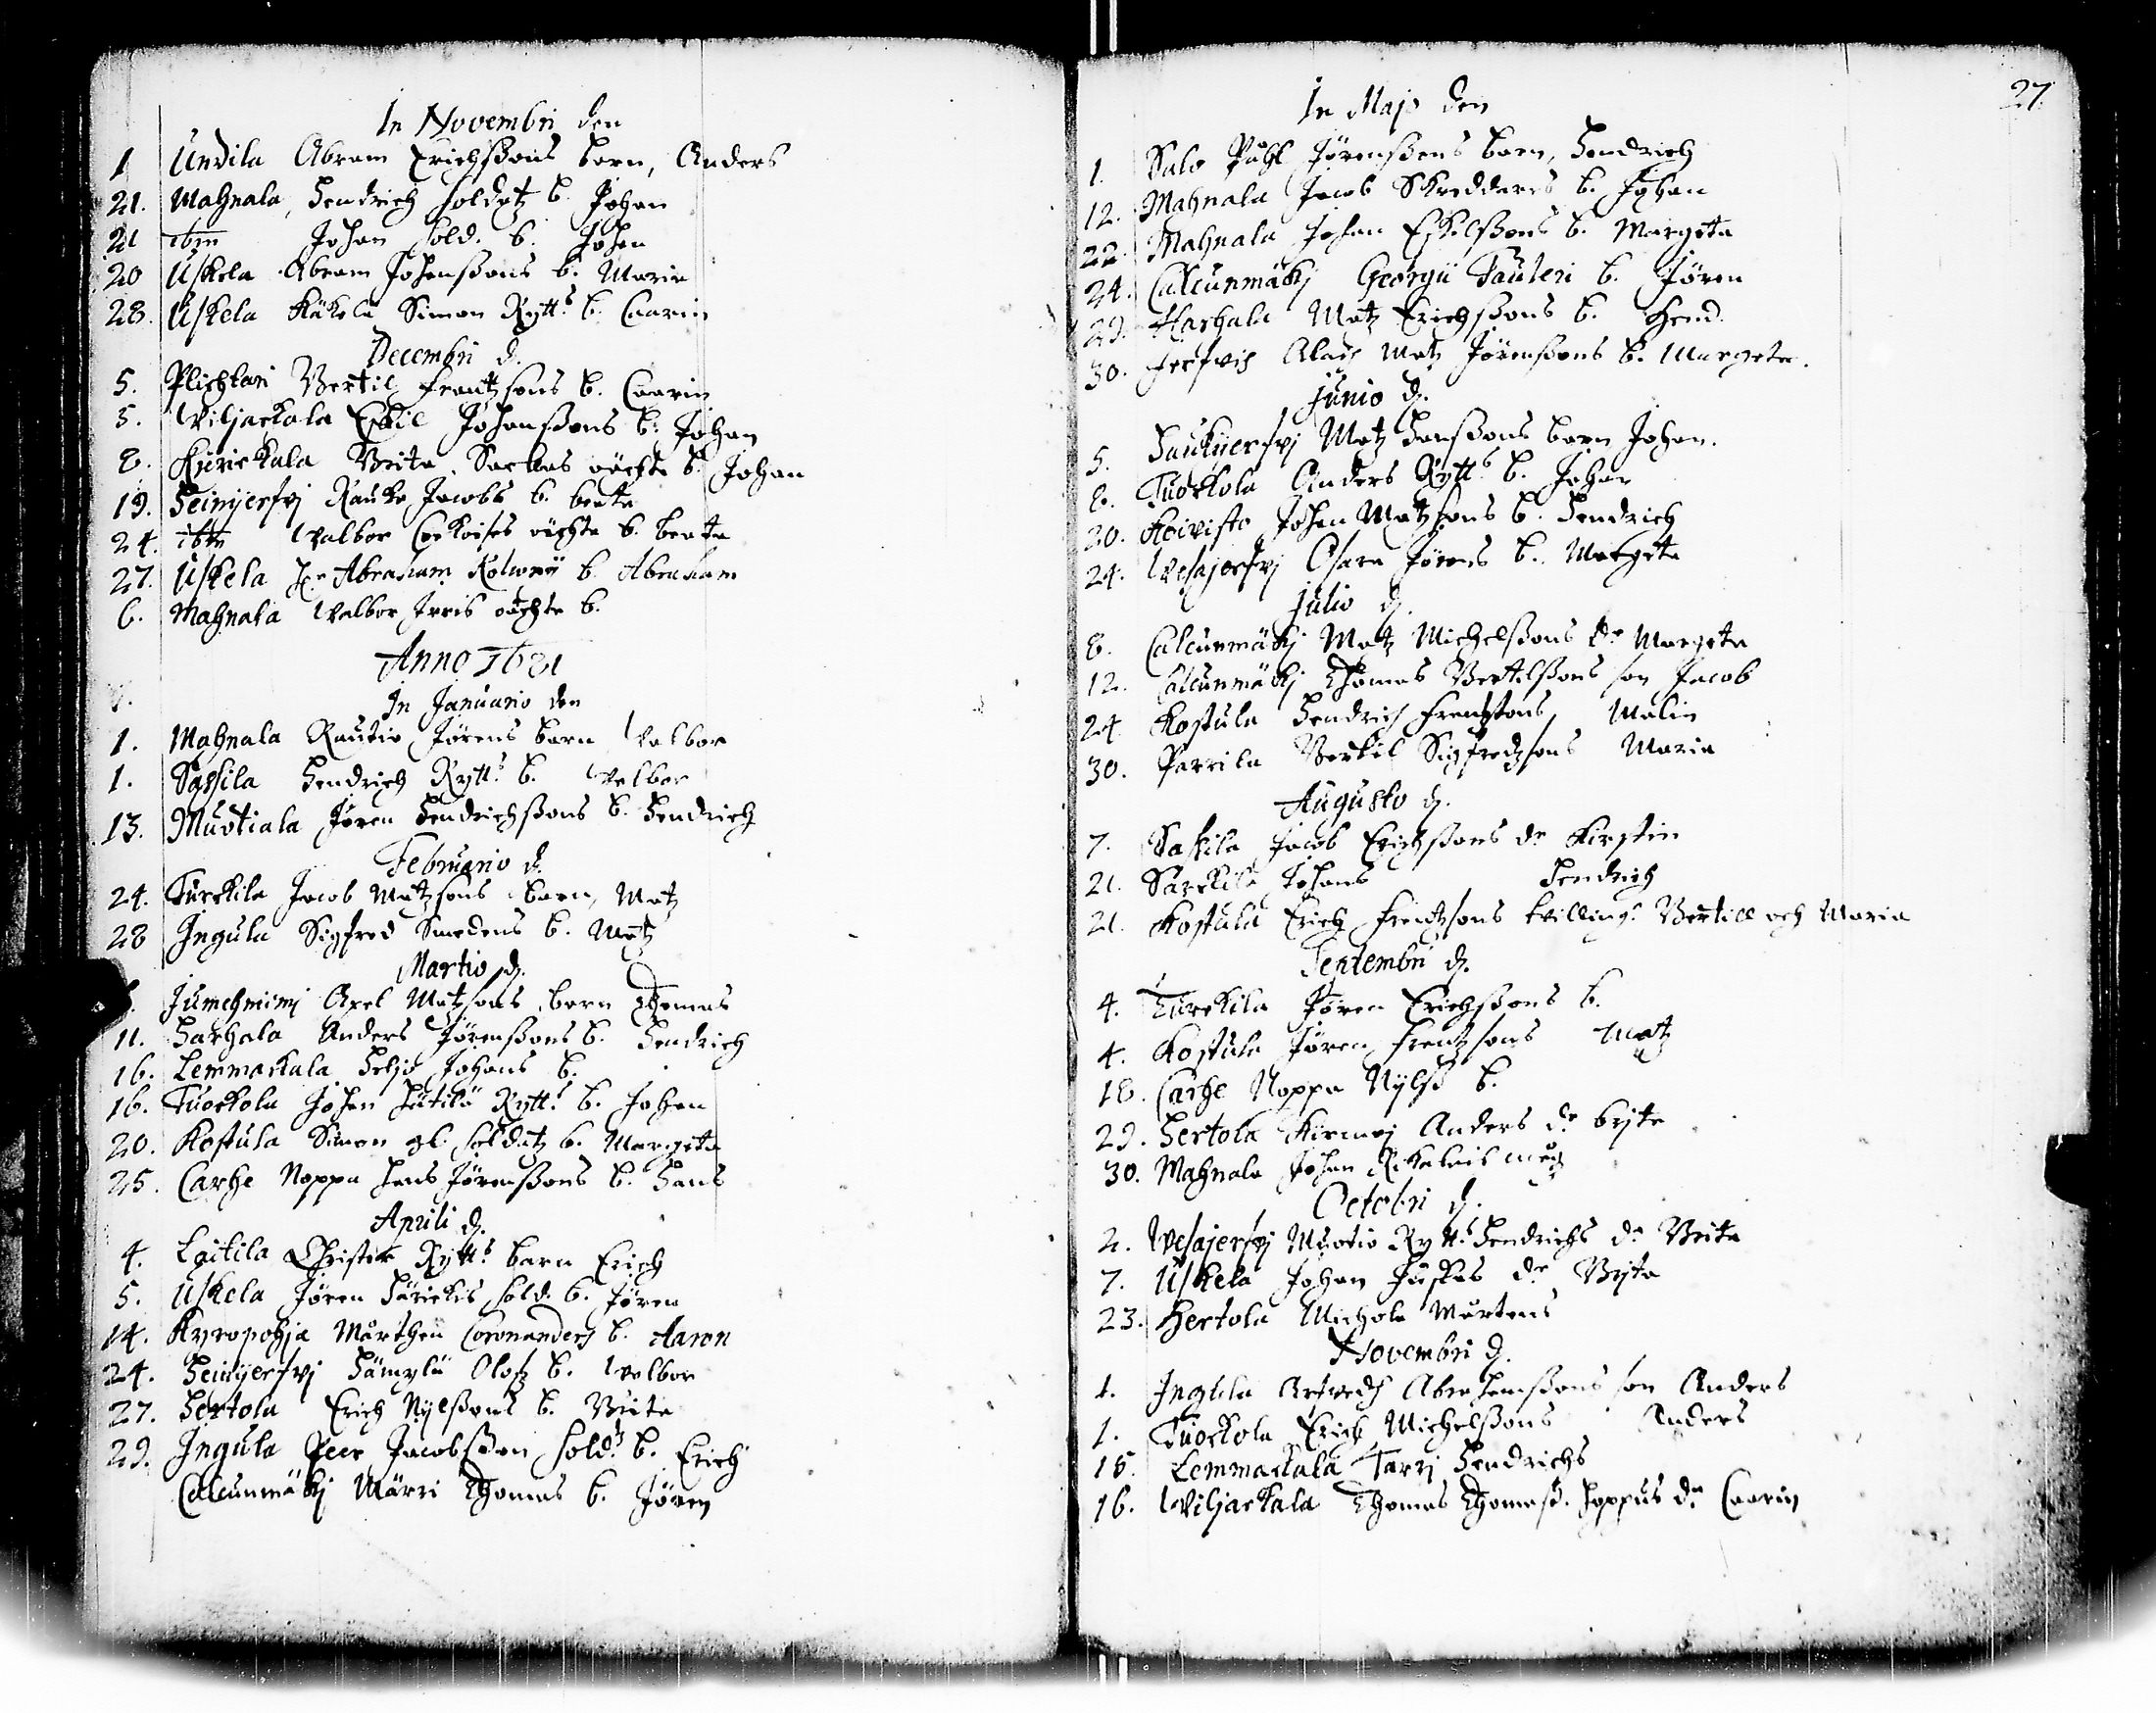 In Novembri den
1 Undila Abram Erichssons barn, Anders
21. Mahnala, Hendrich soldatz b. Johan
21 ibm Johan sold. b. Johan
20 Uskela Abram Johanssons b. Maria
28. Uskela Käkelä Simon Rytt. b. Caarin
Decembri d.
5. Plichtari Bertil Frantzsons b. Caarin
5. Wiljackala Eskil Johanssons b. Johan
8. Kyrickala Brita b. Johan
19. Heinijerfvj Rauko Jacobs b. beata
24. ibm Walbor oächta b. beata
27. Uskela Hr Abraham b. Abraham
6. Mahnala Walbor oächta b.
Anno 1681
In Januario den
1. Mahnala Rautio Jörens barn Walbor
1. Sassila Hendrich Rytt. b. Walbor
13. Muotiala Jören Hendrichssons b. Hendrich
Februario d.
24. Turckila Jacob Matzsons barn, Matz
28 Ingula Sigfred Smedens b. Matz
Martio d.
Jumesniemj Axel Matzsons barn Thomas
11. Harhala Anders Jörenssons b. Hendrich
16. Lemmackala Heljo Johans b.
16. Tuockola Johan Hutilä Rytt. b. Johan
20. Kostula Simon gl. soldatz b. Margeta
25. Carhe Noppa Hans Jörenssons b. Hans
Aprili d.
4. Laitila Christer Rytt. barn Erich
5. Uskela Jören Härickis sold. b. Jören
14. Kyropohja Mårthen Coronanders b. Aaron
24. Heinijerfvj Hämylä Olofz b. Walbor
27. Hertola Erich Nylssons b. Brita
29. Ingula Peer Jacobsson sold. b. Erich
Calcunmäkj Märri Thomas b. Jören
27.
In Majo den
1. Salo Påhl Jörenssons barn, Hendrich
12. Mahnala Jacob Skreddares b. Johan
22. Mahnala Johan Eskelssons b. Margeta
24. Calcunmäkj Georgii Fauleri b. Jören
29. Harhala Matz Erichssons b. Hend.
30. Jerfvis Matz Jörenssons b. Margeta.
Junio d.
5. Haukijerfvj Matz Hanssons barn Johan.
8. Tuockola Anders Rytt. b. Johan
20. Koivisto Johan Matzsons b. Hendrich
24. Wesajerfvj Osara Jörens b. Margeta
Julio d.
8. Calcunmäkj Matz Michelssons dr Margeta
12. Calcunmäkj Thomas Bertilssons son Jacob
24. Kostula Hendrich Frantzsons Malin
30. Parrila Bertil Sigfredzsons Maria
Augusto d.
7. Sassila Jacob Erichssons dr Kirstin
21. Sarckila Johans Hendrich
21. Kostula Erich Frantzsons tvilling. Bertill och Maria
Septembri d.
4. Turckila Jören Erichssons b.
4. Kostula Jören Frantzsons Matz
18. Carhe Noppa Nylss b.
29. Hertola Anders dr bryta
30. Mahnala Johan
Octobri d.
2. Wesajerfvj Muotio Rytt. Hendrichs dr Brita
7. Uskela Johan Juskas dr Bryta
23. Hertola Michola Mårtens
Novembri d.
1. Ingula Arfvedh Abrahamssons son Anders
1. Tuockola Erich Michelssons Anders
15. Lemmackala Tarrj Hendrichs
16. Wiljackala Thomas Thomass. Hoppus dr Caarin